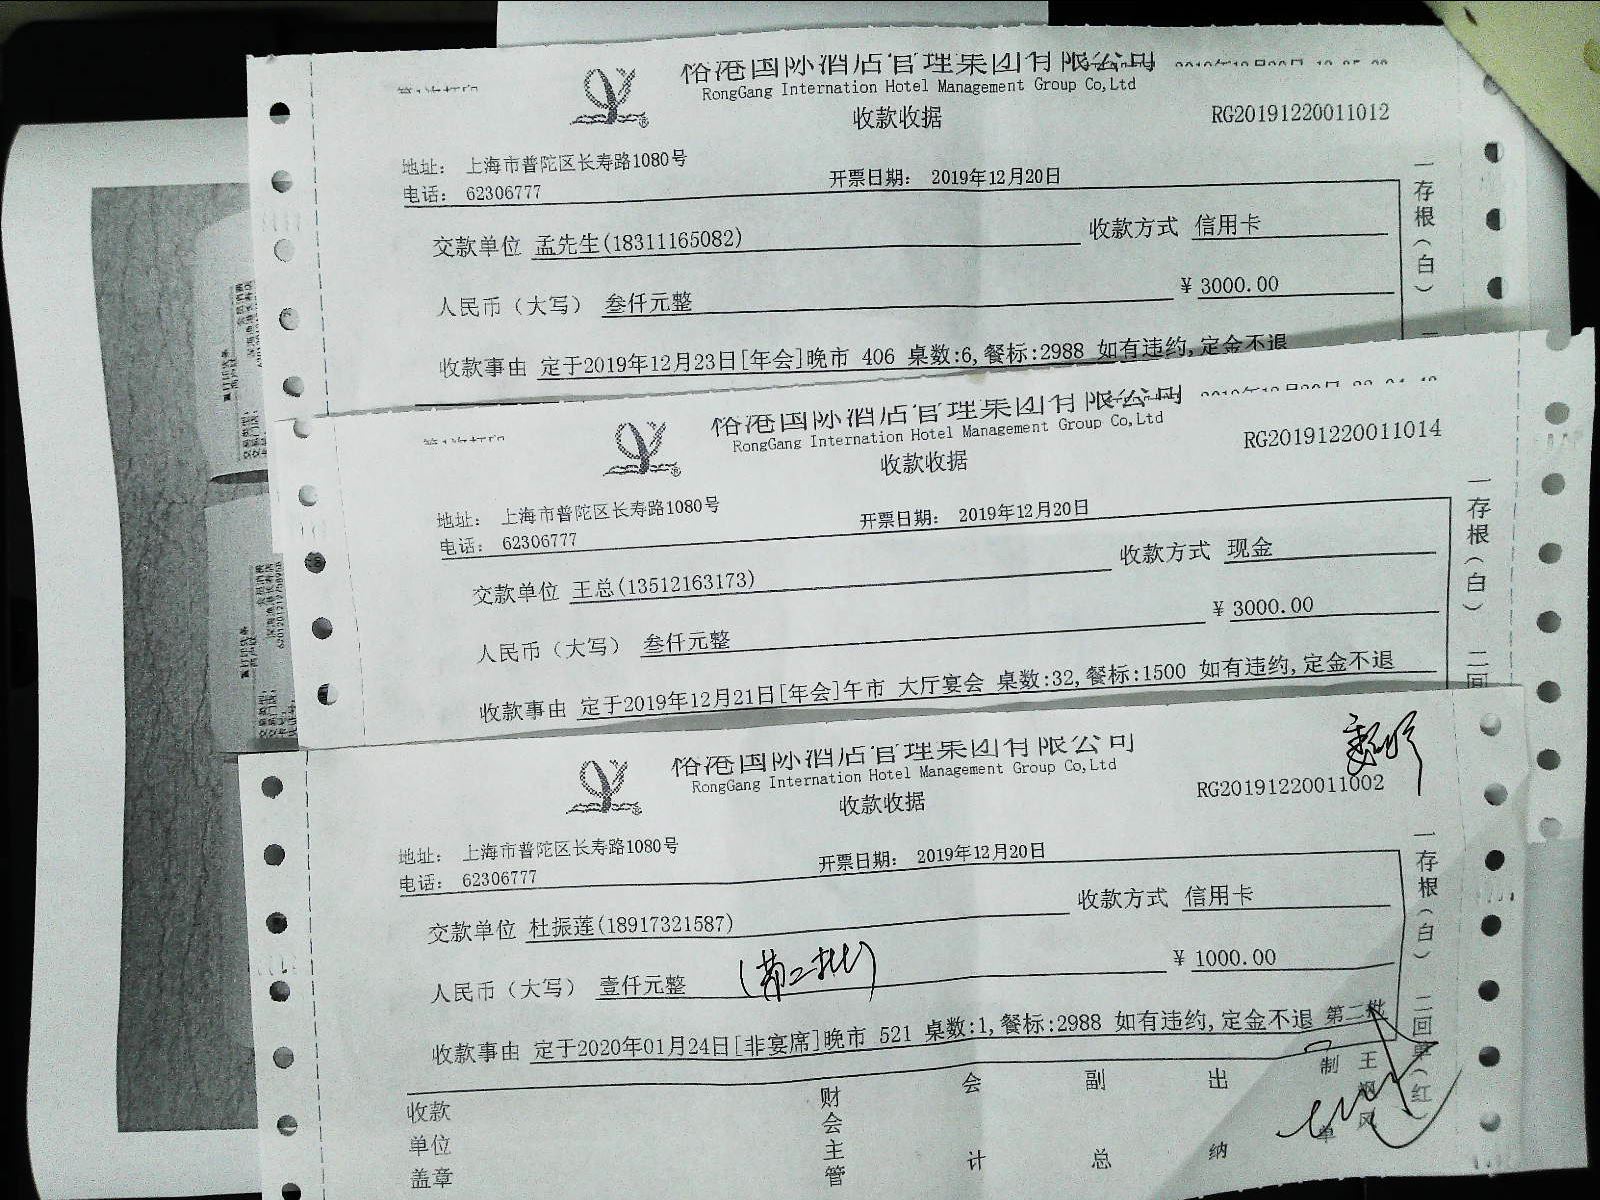 裕港国际酒店管理集团有限公司
RongGang Internation Hotel Management Group Co,Ltd
收款收据
RG20191220011012
地址: 上海市普陀区长寿路1080号
电话: 62306777
开票日期: 2019年12月20日
交款单位 孟先生(18311165082)
收款方式 信用卡
人民币(大写) 叁仟元整
¥ 3000.00
收款事由 定于2019年12月23日[年会]晚市 406 桌数:6,餐标:2988 如有违约,定金不退
一存根(白)
裕港国际酒店管理集团有限公司
RongGang Internation Hotel Management Group Co,Ltd
收款收据
RG20191220011014
地址: 上海市普陀区长寿路1080号
电话: 62306777
开票日期: 2019年12月20日
交款单位 王总(13512163173)
收款方式 现金
人民币(大写) 叁仟元整
¥ 3000.00
收款事由 定于2019年12月21日[年会]午市 大厅宴会 桌数:32,餐标:1500 如有违约,定金不退
一存根(白) 二回
裕港国际酒店管理集团有限公司
RongGang Internation Hotel Management Group Co,Ltd
收款收据
RG20191220011002
地址: 上海市普陀区长寿路1080号
电话: 62306777
开票日期: 2019年12月20日
交款单位 杜振莲(18917321587)
收款方式 信用卡
人民币(大写) 壹仟元整 (第二批)
¥ 1000.00
收款事由 定于2020年01月24日[非宴席]晚市 521 桌数:1,餐标:2988 如有违约,定金不退 第二批
一存根(白) 二回单(红)
收款单位盖章
财会主管
会计
副总
出纳
制单